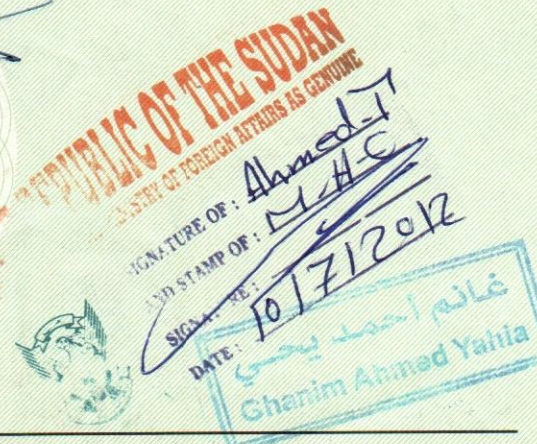 REPUBLIC OF THE SUDAN
MINISTRY OF FOREIGN AFFAIRS AS GENUINE
SIGNATURE OF : Ahmed.T
AND STAMP OF : M.H.C
SIGNATURE :
DATE : 10/7/2012
غانم أحمد يحيى
Ghanim Ahmed Yahia